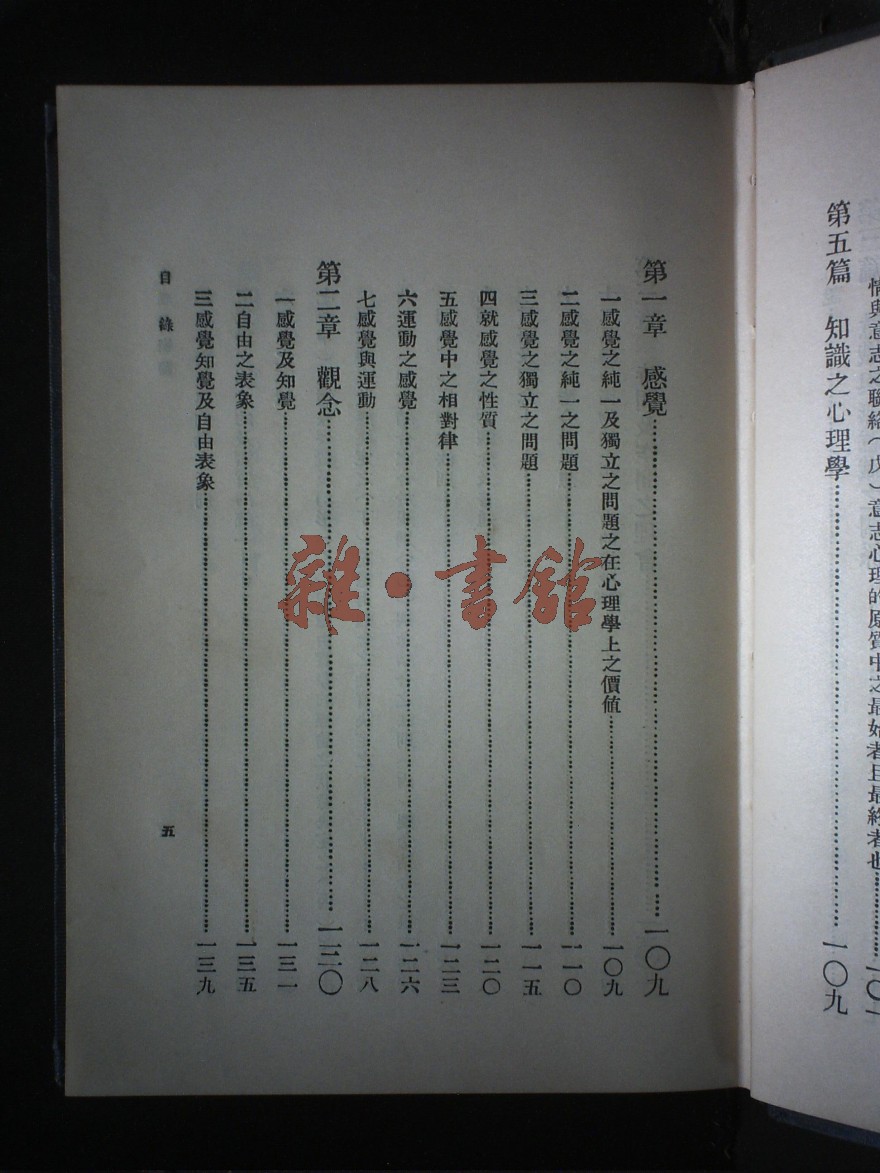 情與意志之聯絡(戊)意志心理的原質中之最始者且最終者也……
第五篇 知識之心理學……一〇九
第一章 感覺……一〇九
一感覺之純一及獨立之問題之在心理學上之價値……一〇九
二感覺之純一之問題……一一〇
三感覺之獨立之問題……一一五
四就感覺之性質……一二〇
五感覺中之相對律……一二三
六運動之感覺……一二六
七感覺與運動……一二八
第二章 觀念……一三〇
一感覺及知覺……一三一
二自由之表象……一三五
三感覺知覺及自由表象……一三九
目錄
五
雜·書館